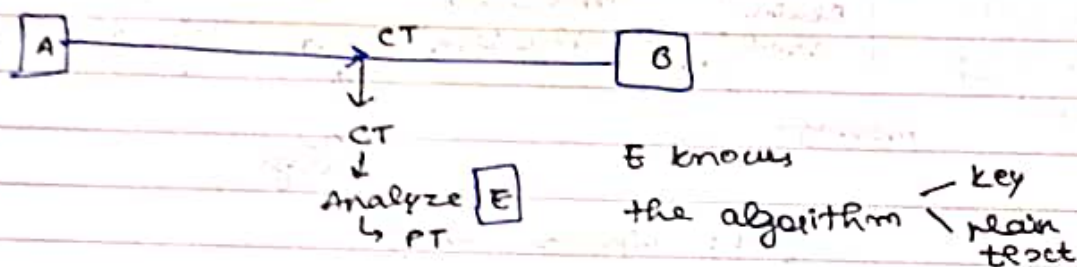 A
CT
B
CT
Analyze E
PT
E knows
the algorithm
key
plain
text